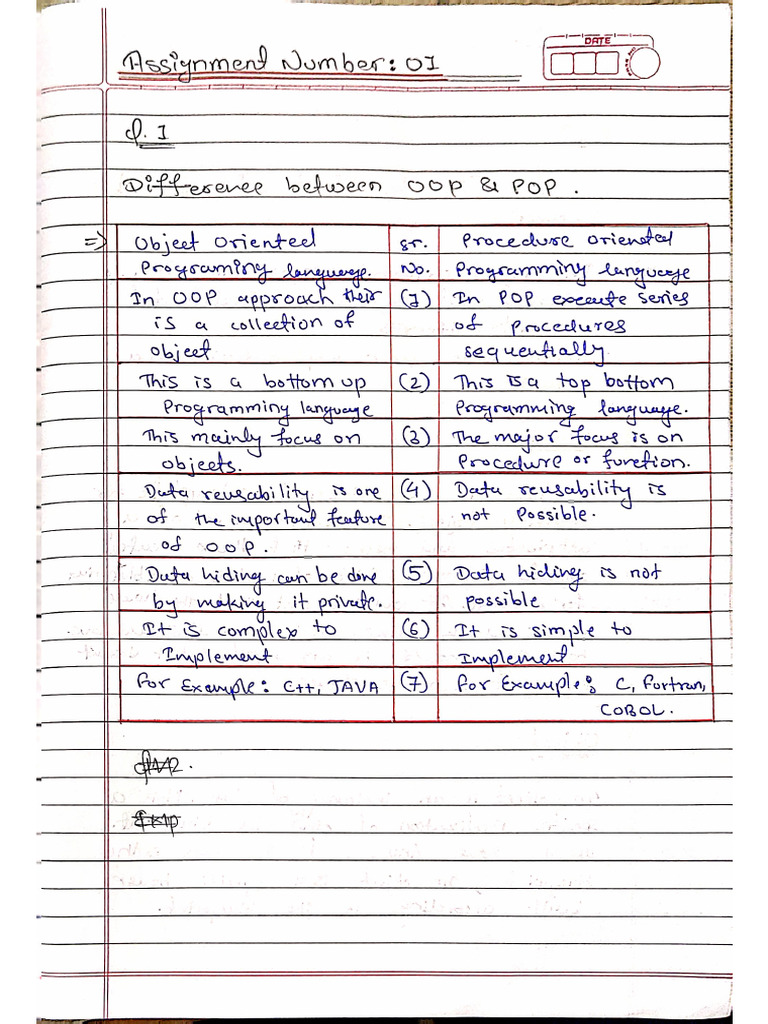 Assignment Number: 01
DATE
Q. 1
Difference between OOP & POP.
=> Object Oriented Sr. Procedure Orienated
Programing language. No. Programming language
In OOP approach their (1) In POP execute series
is a collection of of Procedures
object sequentially
This is a bottom up (2) This is a top bottom
Programming language Programming language.
This mainly focus on (3) The major focus is on
objects. Procedure or function.
Data reusability is one (4) Data reusability is
of the important feature not Possible.
of OOP.
Data hiding can be done (5) Data hiding is not
by making it private. possible
It is complex to (6) It is simple to
Implement Implement
For Example: C++, JAVA (7) For Example: C, Fortran,
COBOL.